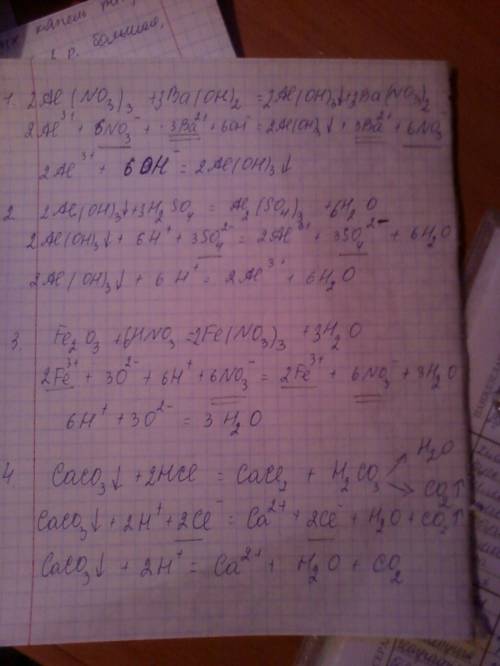 капель
в р. большая,
1. 2Al(NO₃)₃ + 3Ba(OH)₂ = 2Al(OH)₃↓+3Ba(NO₃)₂
2Al³⁺ + 6NO₃⁻ + 3Ba²⁺ + 6OH⁻ = 2Al(OH)₃↓ + 3Ba²⁺ + 6NO₃⁻
2Al³⁺ + 6OH⁻ = 2Al(OH)₃↓
2. 2Al(OH)₃↓+3H₂SO₄ = Al₂(SO₄)₃ + 6H₂O
2Al(OH)₃↓ + 6H⁺ + 3SO₄²⁻ = 2Al³⁺ + 3SO₄²⁻ + 6H₂O
2Al(OH)₃↓ + 6H⁺ = 2Al³⁺ + 6H₂O
3. Fe₂O₃ + 6HNO₃ = 2Fe(NO₃)₃ + 3H₂O
2Fe³⁺ + 3O²⁻ + 6H⁺ + 6NO₃⁻ = 2Fe³⁺ + 6NO₃⁻ + 3H₂O
6H⁺ + 3O²⁻ = 3H₂O
H₂O
4. CaCO₃↓ + 2HCl = CaCl₂ + H₂CO₃
CO₂↑
CaCO₃↓ + 2H⁺ + 2Cl⁻ = Ca²⁺ + 2Cl⁻ + H₂O + CO₂↑
CaCO₃↓ + 2H⁺ = Ca²⁺ + H₂O + CO₂